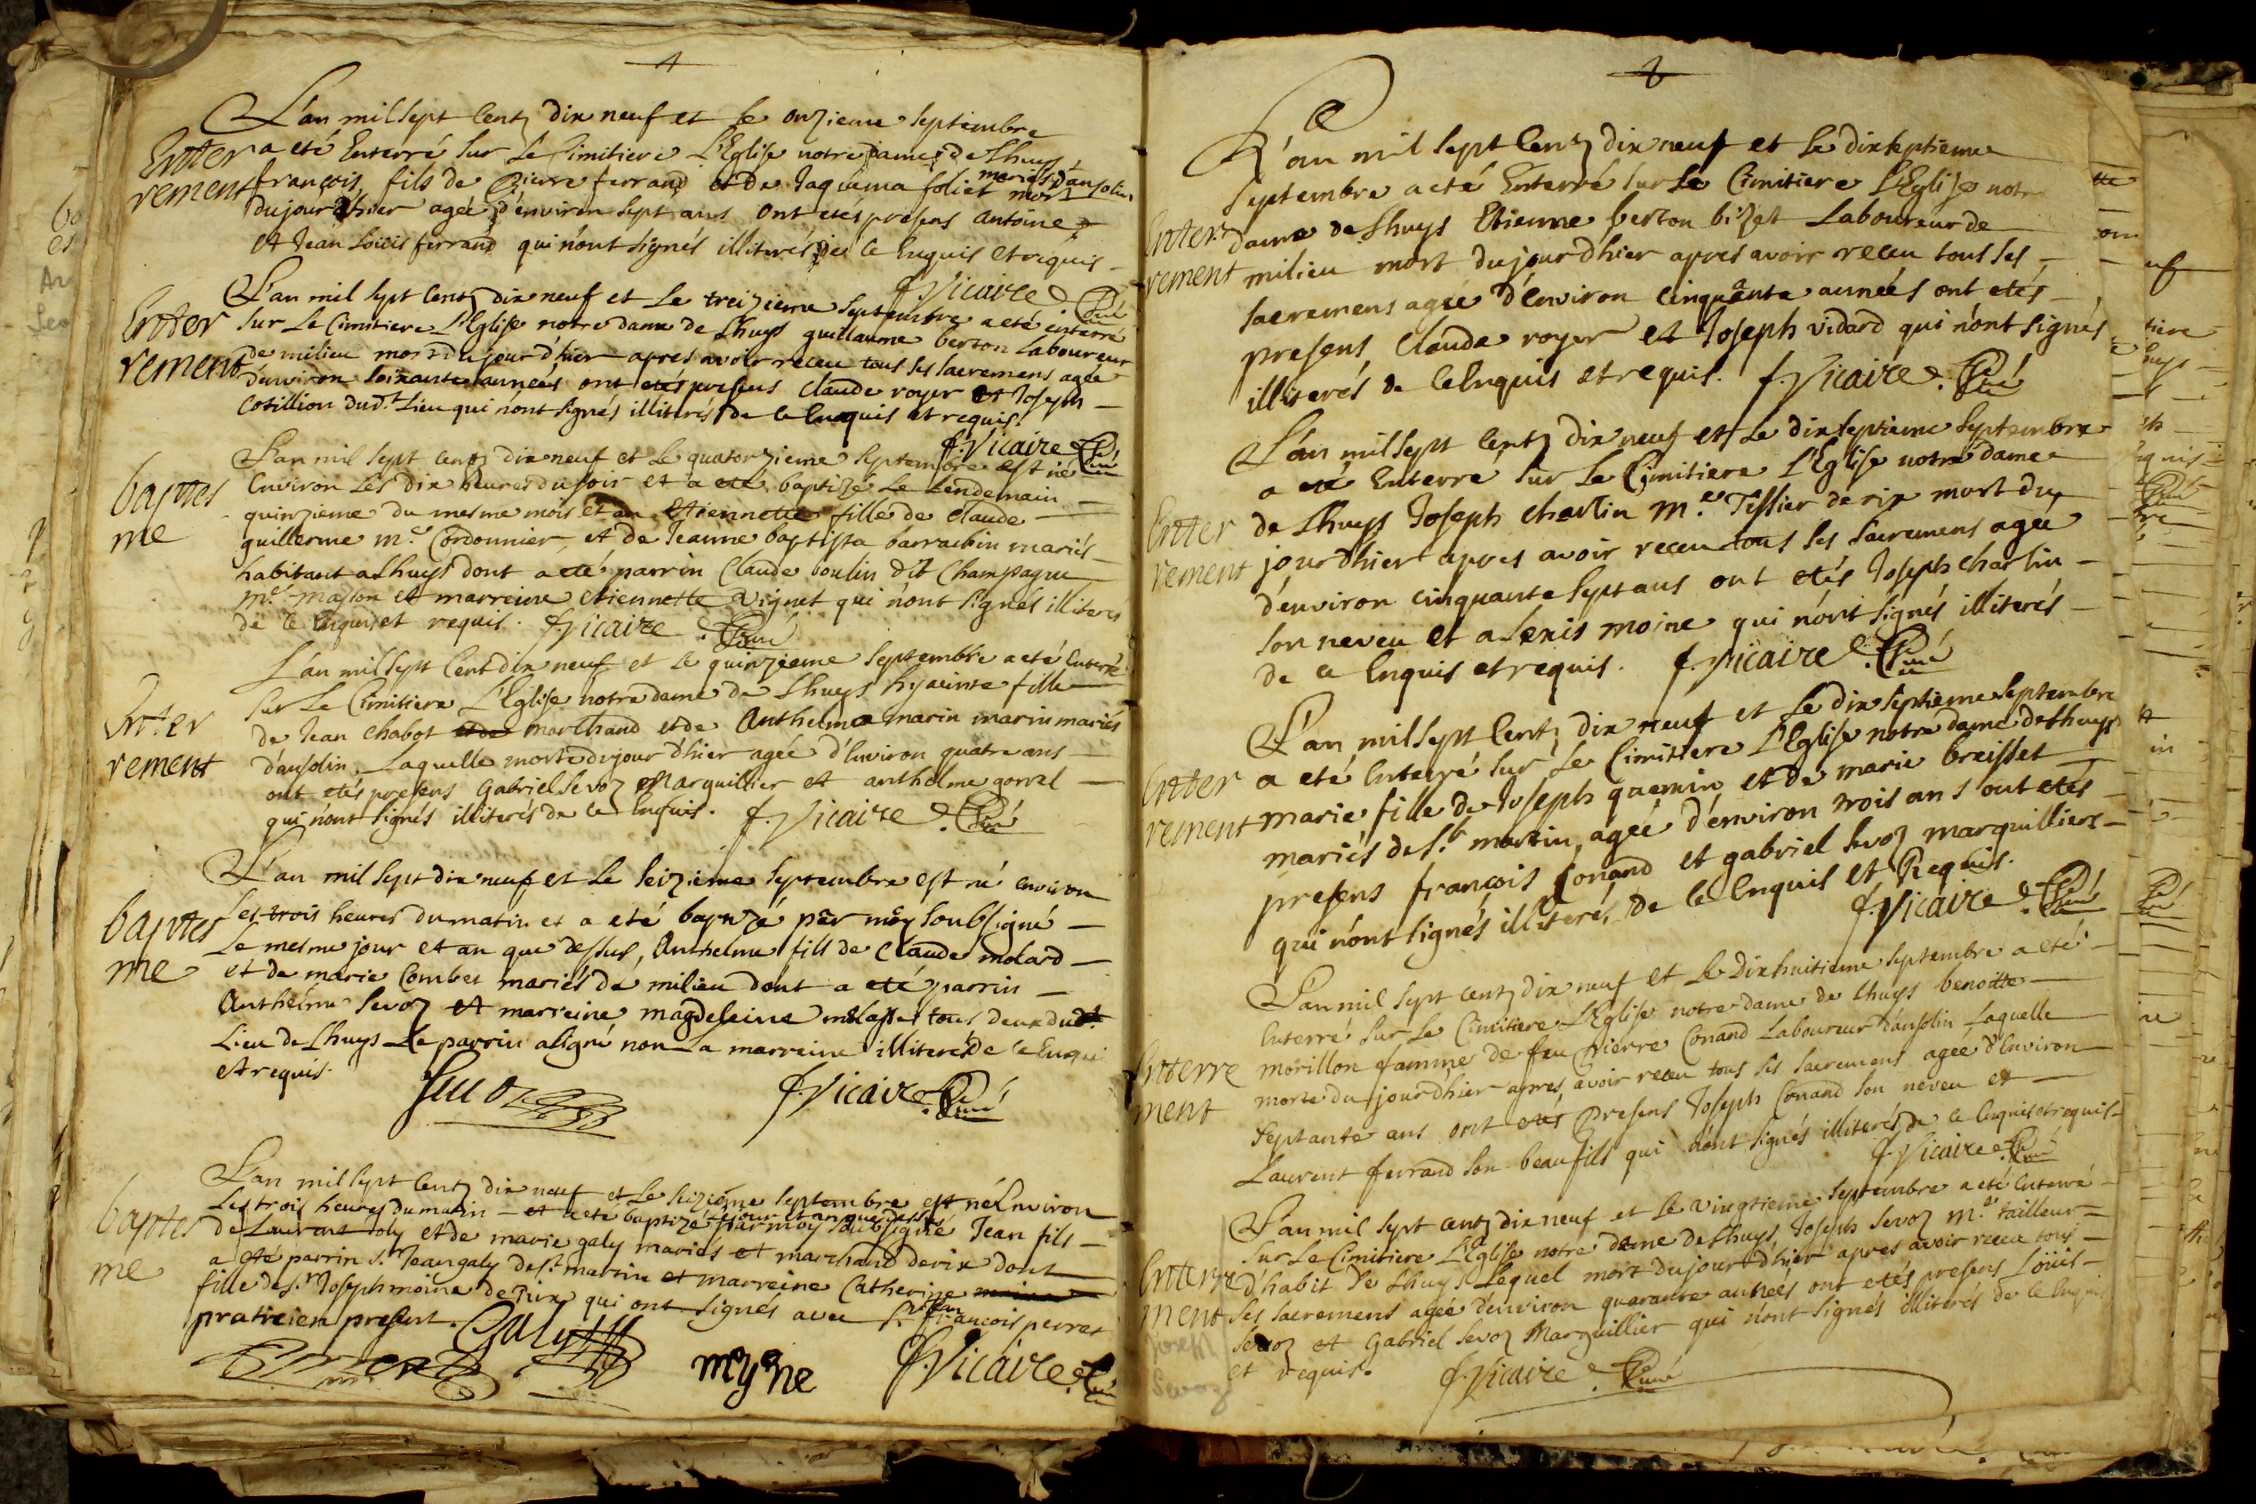 L'an mil sept centz dix neuf et le onzieme septembre
Enter a eté Enterré sur le Cimitiere L'Eglise notre dame de Lhuys
mariés d'ansolin
rement françois, fils de Pierre ferrand et de Jaquema foliet mort
dujourdhier agée d'environ sept ans ont etés presens antoine
et Jean Loüis ferrand qui n'ont signés illiterés de ce Enquis et requis
f. Vicaire Curé
L'an mil sept centz dix neuf et le treizieme septembre a eté enterré
Enter sur le Cimitiere L'Eglise notre dame de Lhuys guillaume berton Laboureur
rement de milieu mort dujourd'hier apres avoir receu tous ses sacremens agée
d'environ soixante années ont etés presens Claude royer et Joseph
Cotillion dud.t Lieu qui n'ont signés illiterés de ce Enquis et requis.
f. Vicaire Curé
L'an mil sept centz dix neuf et le quatorzieme septembre est né
baptes Environ les dix heures du soir et a eté baptizé le Lendemain
me quinzieme du mesme mois et an Etiennette fille de Claude
guillerme m.e Cordonnier, et de Jeanne baptista barrachin mariés
habitant a Lhuys dont a eté parrin Claude boulin dit Champagne
m.e masson et marreine etiennette vignet qui n'ont signés illiterés
de ce enquis et requis. f. Vicaire Curé
L'an mil sept Cent dix neuf et le quinzieme septembre a eté Enterré
Enter sur le Cimitiere L'Eglise notre dame de Lhuys hyacinte fille
de Jean Chabot et de marchand et de Anthelma marin marin mariés
rement d'ansolin, Laquelle morte dujourdhier agée d'Environ quatre ans
ont etés presens Gabriel Sevoz Marguillier et anthelme gorrel
qui n'ont signés illiterés de ce Enquis. f. Vicaire Curé
L'an mil sept dix neuf et le seizieme septembre est né environ
baptes les trois heures du matin et a eté baptizé par moy soubsigné
me Le mesme jour et an que dessus, Anthelme fils de Claude molard
et de marie Combet mariés de milieu dont a eté parrin
Anthelme Sevoz et marreine magdeleine tous deux dud.t
Lieu de Lhuys Le parrin a signé non La marreine illiterée de ce Enqui
et requis.
Sevoz f. Vicaire Curé
L'an mil sept Centz dix neuf et Le seizieme septembre est né Environ
baptes Les trois heures du matin et a eté baptizé le jour et an que dessus par moy soubsigné Jean fils
de Laurent Joly et de marie galy mariés et marchand de rix dont
me a eté parrin s.r Jean galy de s.t martin et marreine Catherine
fille de s.r Joseph moine de rix qui ont signés avec s.r françois perret
praticien present. Galy
moyne f. Vicaire Curé
L'an mil sept Centz dix neuf et le dixseptieme
septembre a eté Enterré sur le Cimitiere L'Eglise notre
Enter dame de Lhuys Etienne berton bizet Laboureur de
rement milieu mort dujourdhier apres avoir receu tous ses
sacremens agée d'Environ Cinquante années ont etés
presens Claude royer et Joseph vidard qui n'ont signés
illiterés de ce Enquis et requis. f. Vicaire Curé
L'an mil sept Centz dix neuf et Le dixseptieme septembre
a eté Enterré sur Le Cimitiere L'Eglise notre dame
Enter de Lhuys Joseph charlin m.e Tissier de rix mort du
rement jourdhier apres avoir receu tous ses sacremens agée
d'environ cinquante sept ans ont etés Joseph charlin
son neveu et alexis moine qui n'ont signés illiterés
de ce Enquis et requis. f. Vicaire Curé
L'an mil sept Centz dix neuf et Le dixseptieme septembre
Enter a eté Enterré sur Le Cimitiere L'Eglise notre dame de Lhuys
rement marie fille de Joseph quemin et de marie breisset
mariés de s.t martin, agée d'environ trois ans ont etés
presens françois Conand et gabriel Sevoz marguilliers
qui n'ont signés illiterés de ce Enquis et Requis.
f. Vicaire Curé
L'an mil sept centz dix neuf et le Dixhuitieme septembre a eté
Enterré sur Le Cimitiere L'Eglise notre dame de Lhuys benoitte
Enterre morillon famme de feu Pierre Conand Laboureur d'ansolin Laquelle
ment morte du jourdhier apres avoir receu tous ses sacremens agée d'Environ
septante ans ont etés Presens Joseph Conand son neveu et
Laurent ferrand son beaufils qui n'ont signés illiterés de ce Enquis et requis
f. Vicaire Curé
L'an mil sept centz dix neuf et Le vingtieme septembre a eté Enterré
sur Le Cimitiere L'Eglise notre dame de Lhuys, Joseph Sevoz m.e tailleur
Enterre d'habit de Lhuys Lequel mort dujourdhier apres avoir receu tous
ment ses sacremens agée d'environ quarante années ont etés presens Loüis
Sevoz et Gabriel Sevoz Marguillier qui n'ont signés illiterés de ce Enquis
et requis. f. Vicaire Curé
Joseph
Sevoz